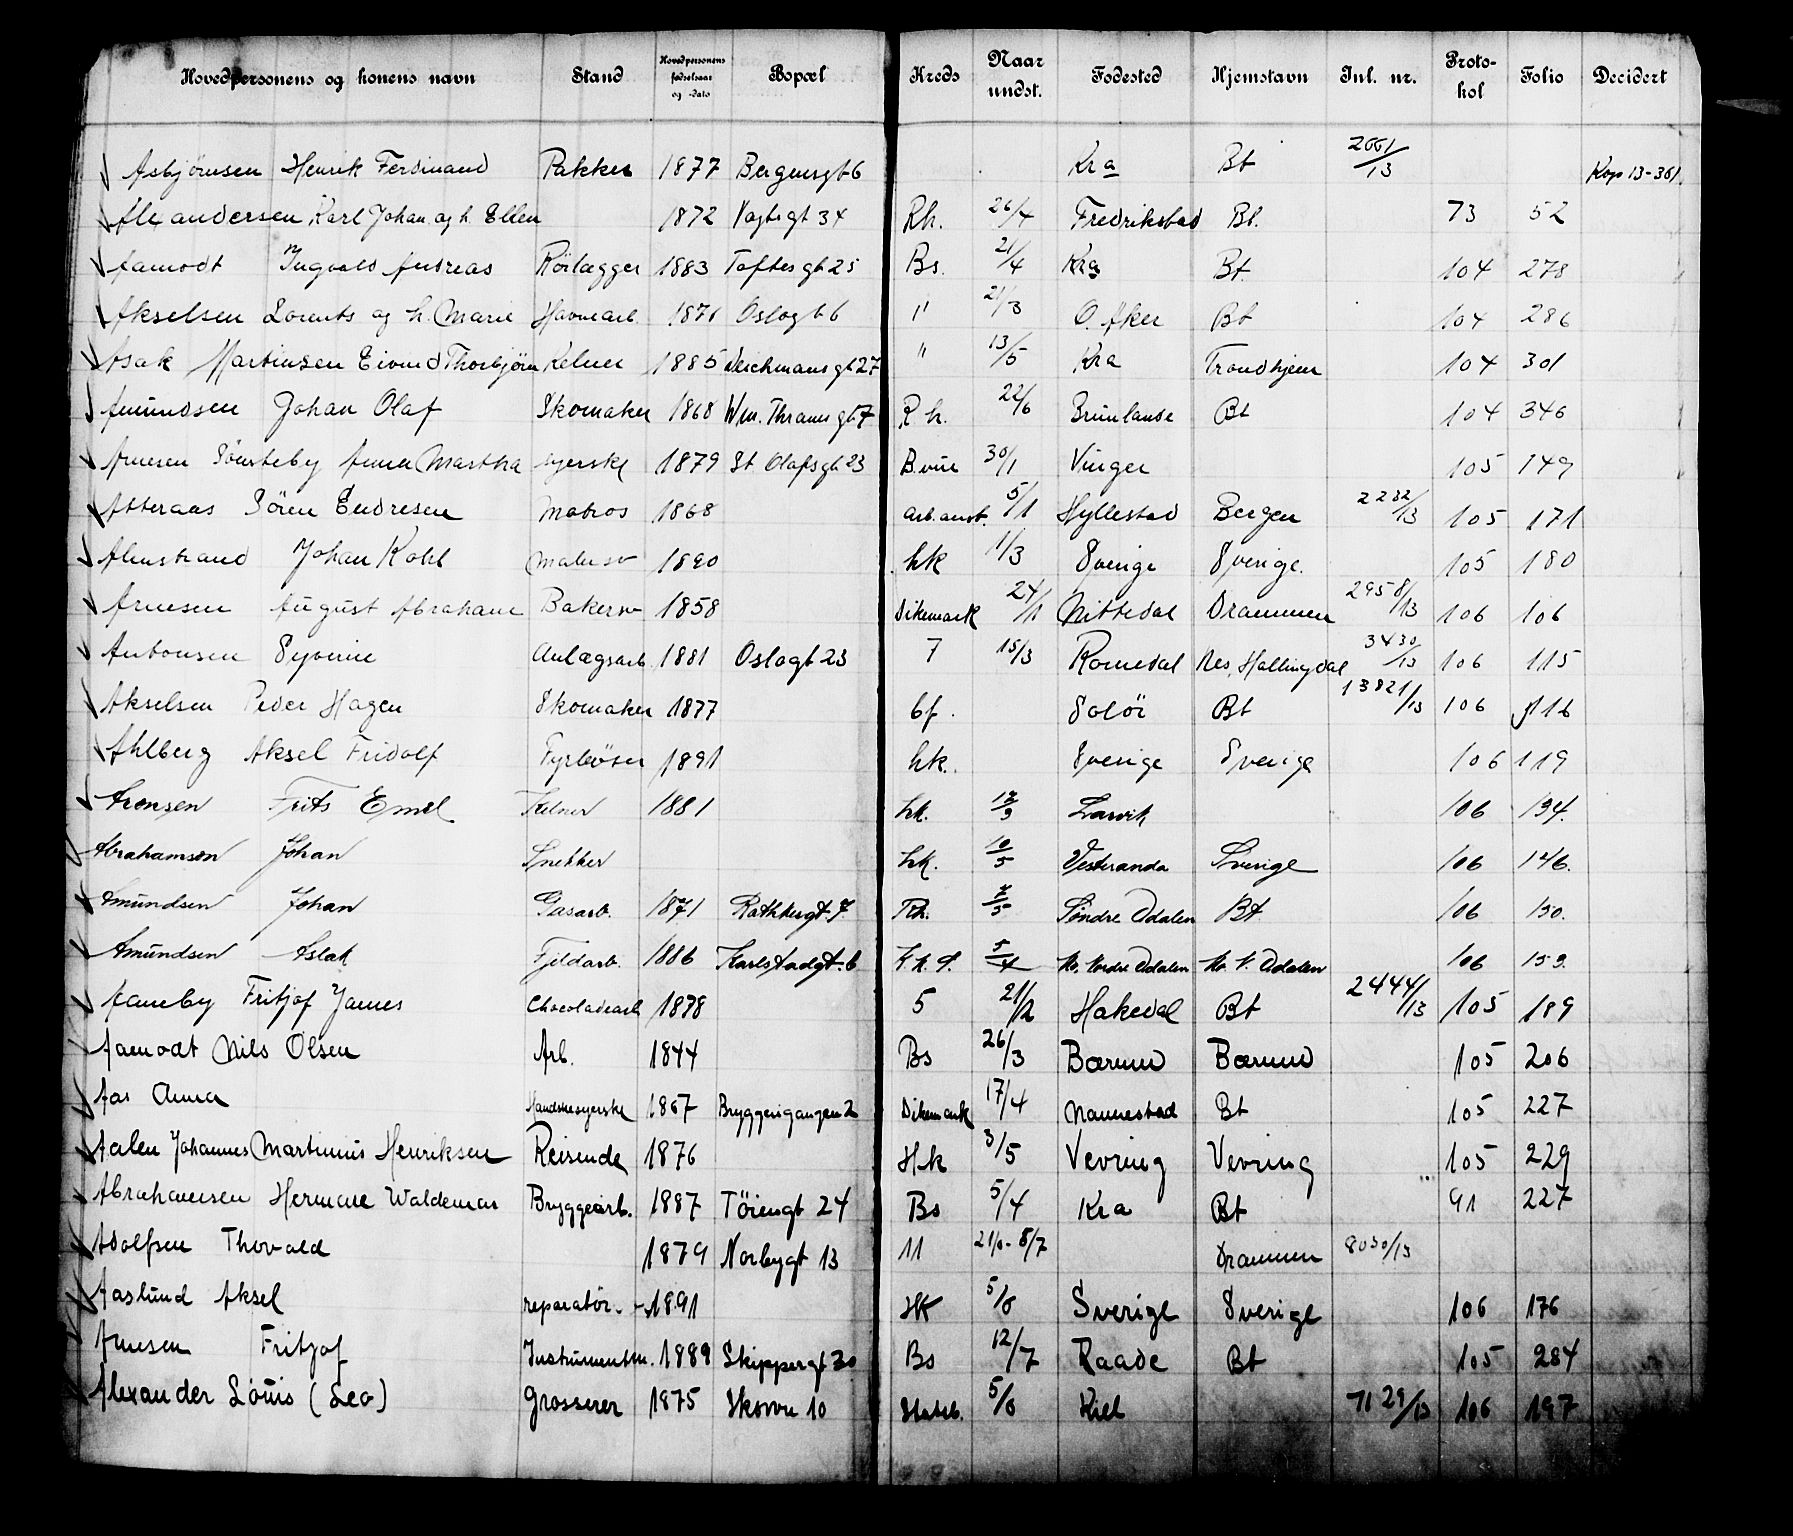 Hovedpersonens og konens navn Stand Hovedpersonens fødselsaar og -dato Bopæl Kreds Naar undst. Fødested Hjemstavn Inl. nr. Protokol Folio Decidert
Asbjørnsen Henrik Ferdinand Pakker 1877 Bergensgt 6 Kra Bt 2661/13 Kop 13-361
Alexandersen Karl Johan og h. Ellen 1872 Vogtsgt 34 Rh. 26/4 Fredrikstad Bt. 73 52
Aamodt Ingvald Andreas Rörlægger 1883 Toftesgt 25 Bs. 21/4 Kra Bt. 104 278
Akselsen Lorents og h. Marie Havnearb. 1871 Oslogt 6 " 21/3 O. Aker Bt 104 286
Asak Martinsen Eivind Thorbjörn Kelner 1885 Deichmansgt 27 " 13/5 Kra Trondhjem 104 301
Amundsen Johan Olaf Skomaker 1868 Wm. Thranes gt 7 Rh. 22/6 Brunlanæs Bt 104 346
Arnesen Sönsteby Anna Martha syerske 1879 St Olafsgt 23 B.vin 30/1 Vinger 105 149
Atteraas Sören Endresen Matros 1868 arb.anst. 5/1 Hyllestad Bergen 2232/13 105 171
Almstrand Johan Kohl Malersv 1890 hk 1/3 Sverige Sverige. 105 180
Arnesen August Abraham Bakersv 1858 Dikemark 24/1 Nittedal Drammen 2958/13 106 106
Antonsen Syverine Anlægsarb. 1881 Oslogt 23 7 15/3 Romedal Nes, Hallingdal 3430/13 106 115
Akselsen Peder Hagen Skomaker 1877 bf. Solör Bt 13821/13 106 116
Ahlberg Aksel Fridolf Fyrböter 1891 hk. Sverige Sverige 106 119
Aronsen Frits Emil Kelner 1881 hk. 12/3 Larvik 106 134.
Abrahamson Johan Snekker hk. 10/5 Vesteranda Sverige 106 146.
Amundsen Johan Gasarb. 1871 Rathkesgt. 7 Rh. 2/5 Söndre Odalen Bt 106 150.
Amundsen Aslak Fjeldarb. 1886 Karlstadgt. 6 5/4 No. Nordre Odalen No. N. Odalen 106 153.
Aaneby Fritjof James Chocoladearb 1878 5 21/2 Hakedal Bt 2444/13 105 189
Aamodt Nils Olsen Arb. 1844 Bs 26/3 Bærum Bærum 105 206
Aas Anna Handskesyerske 1867 Bryggerigangen 2 Dikemark 17/4 Nannestad Bt 105 227
Aalen Johannes Martinius Henriksen Reisende 1876 Hk 3/5 Vevring Vevring 105 229
Abrahamsen Herman Waldemar Bryggearb. 1887 Töiengt 24 Bs 5/4 Kra Bt 91 227
Adolfsen Thorvald 1879 Norbygt 13 11 21/6-8/7 Drammen 8030/13
Aaslund Aksel reparatör. 1891 Hk 5/6 Sverige Sverige 106 176
Arnesen Fritjof Instrumentm. 1889 Skippergt 20 Bs 12/7 Raade Bt 105 284
Alexander Louis (Leo) Grosserer 1875 Skovvn 10 Statsb. 5/6 Kiel 7129/13 106 197